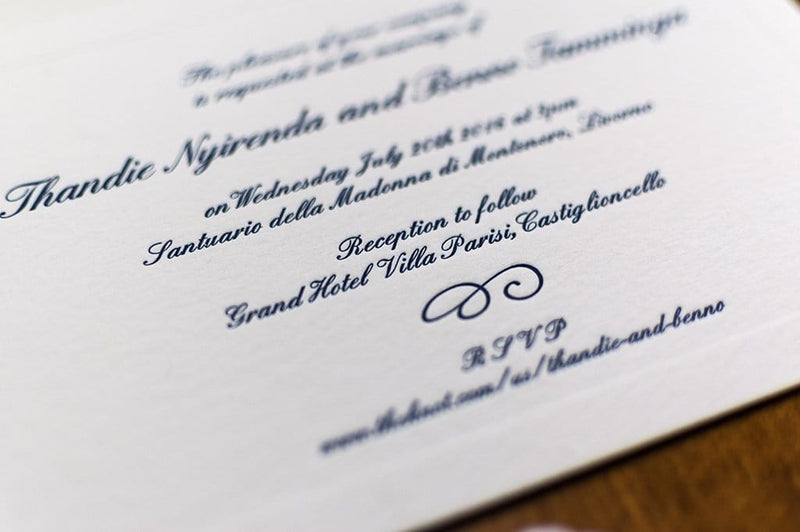 The pleasure of your company
is requested at the marriage of
Thandie Nyirenda and Benno
on Wednesday July 20th 2016 at 3pm
Santuario della Madonna di Montenero, Livorno
Reception to follow
Grand Hotel Villa Parisi, Castiglioncello
R S V P
www.theknot.com/us/thandie-and-benno